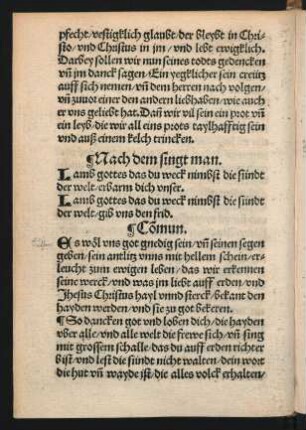 pfecht/vestigklich glaubt/der bleybt in Chri-
sto/vnd Christus in jm/vnd lebt ewigklich.
Darbey sollen wir nun seines todts gedencken
vñ jm danck sagen/Ein yegklicher sein creütz
auff sich nemen/vñ dem herren nach volgen/
vñ zuuot einer den andern liebhaben/wie auch
er vns geliebt hat. Dañ wir vil sein ein prot vñ
ein leyb/die wir all eins prots taylhafftig sein
vnd auß einem kelch trincken.
¶Nach dem singt man.
Lamb gottes das du weck nimbst die sündt
der welt/erbarm dich vnser.
Lamb gottes das du weck nimbst die sündt
der welt/gib vns den frid.
¶Cõmun.
Es wöl vns got gnedig sein/vñ seinen segen
geben/sein antlitz vnns mit hellem schein/er-
leucht zum ewigen leben/das wir erkennen
seine werck/vnd was jm liebt auff erden/vnd
Jhesus Christus hayl vnnd sterck/bekant den
hayden werden/vnd sie zu got bekeren.
¶So dancken got vnd loben dich/die hayden
vber alle/vnd alle welt die frewe sich/vñ sing
mit grossem schalle/das du auff erden richter
bist/vnd lest die sündt nicht walten/dein wort
die hut vñ wayde ist/die alles volck erhalten/